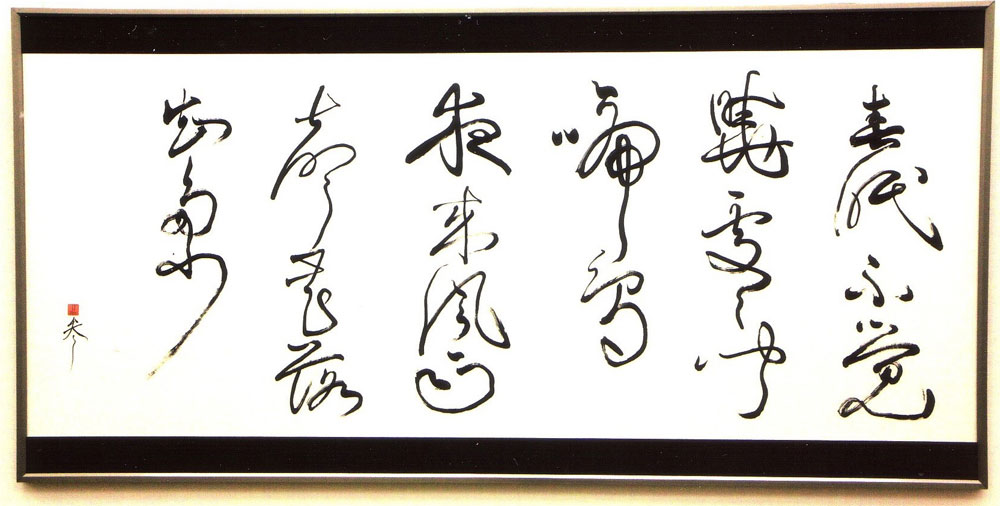 春眠不覺
曉處處聞
啼鳥
夜来風雨
聲花落
知多少